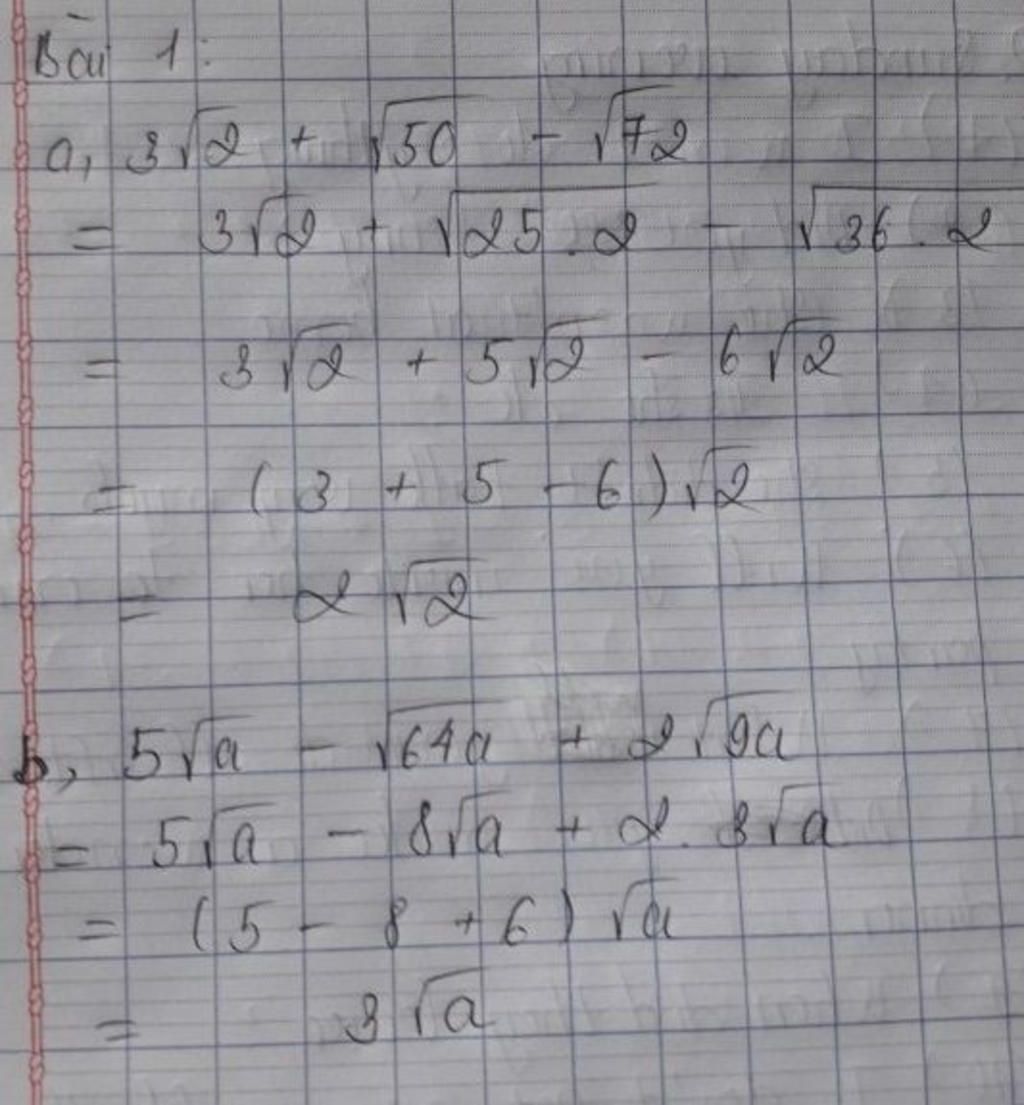 Bài 1:
a, 3√2 + √50 - √72
= 3√2 + √25.2 - √36.2
= 3√2 + 5√2 - 6√2
= (3 + 5 - 6)√2
= 2√2
b, 5√a - √64a + 2√9a
= 5√a - 8√a + 2.3√a
= (5 - 8 + 6)√a
= 3√a